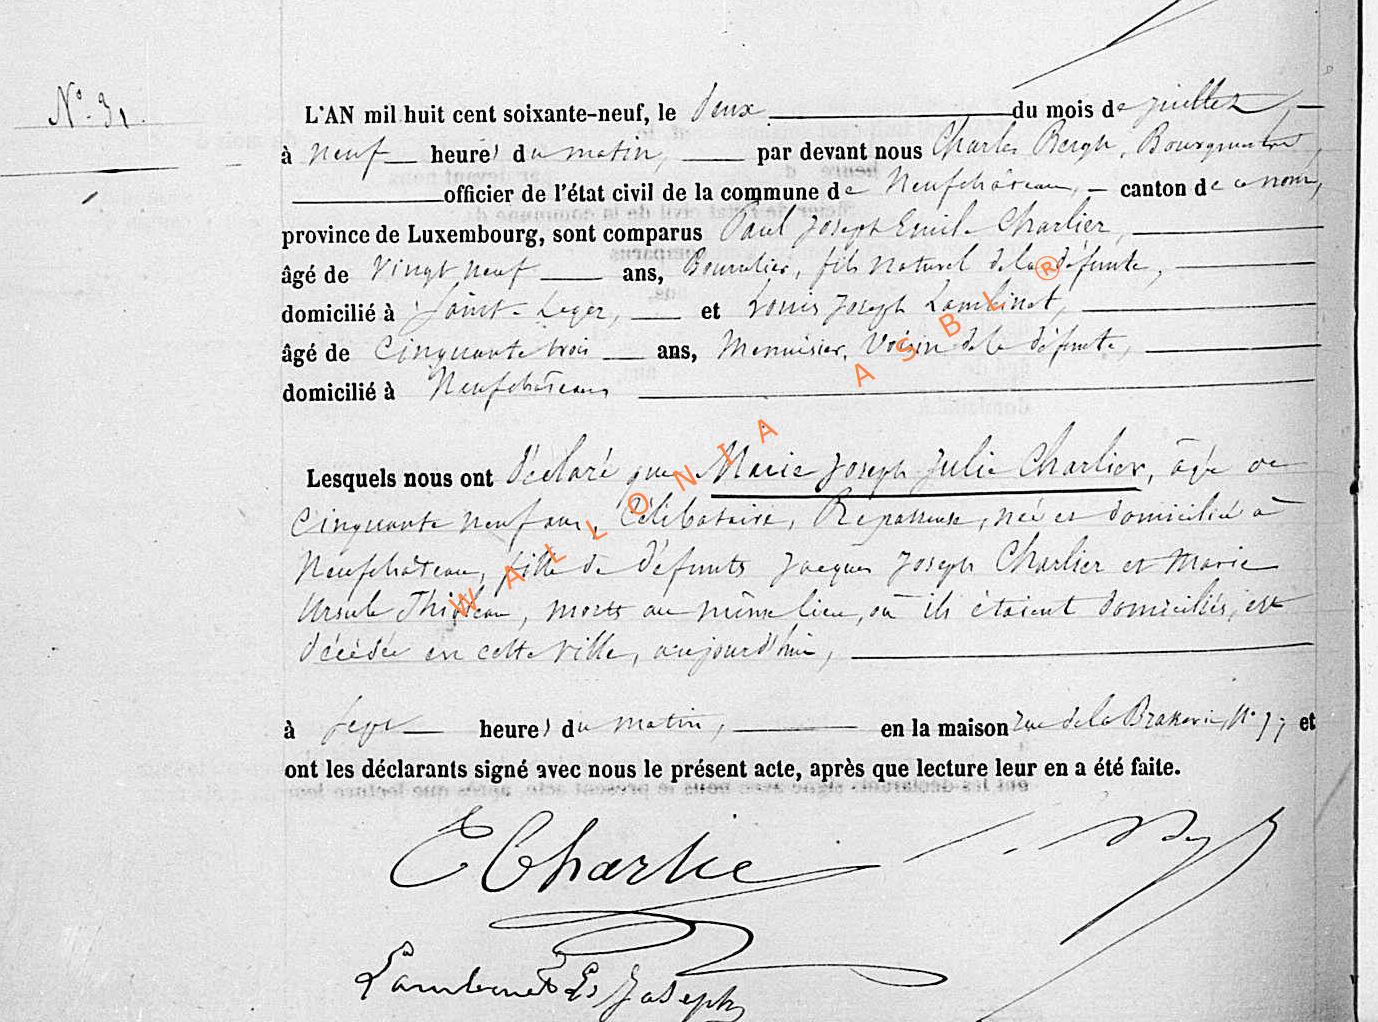 N° 31.
L'AN mil huit cent soixante-neuf, le deux du mois de juillet,
à neuf heures du matin, par devant nous Charles Bergh, Bourgmestre,
officier de l'état civil de la commune de Neufchâteau, canton de ce nom,
province de Luxembourg, sont comparus Paul Joseph Emile Charlier,
âgé de vingt neuf ans, Bourrelier, fils naturel de la défunte,
domicilié à Saint-Leger, et Louis Joseph Lambinet,
âgé de Cinquante trois ans, Menuisier, Voisin de la défunte,
domicilié à Neufchâteau
Lesquels nous ont déclaré que Marie Joseph Julie Charlier, âgée de
Cinquante neuf ans, Célibataire, Repasseuse, née et domiciliée à
Neufchâteau, fille de défunts Jacques Joseph Charlier et Marie
Ursule, morts au même lieu, où ils étaient domiciliés, est
décédée en cette ville, aujourd'hui,
à sept heures du matin, en la maison rue de la Brasserie, N° 77 et
ont les déclarants signé avec nous le présent acte, après que lecture leur en a été faite.
E Charlie
Lambinet Ls Joseph
WALLONIA ASBL ®